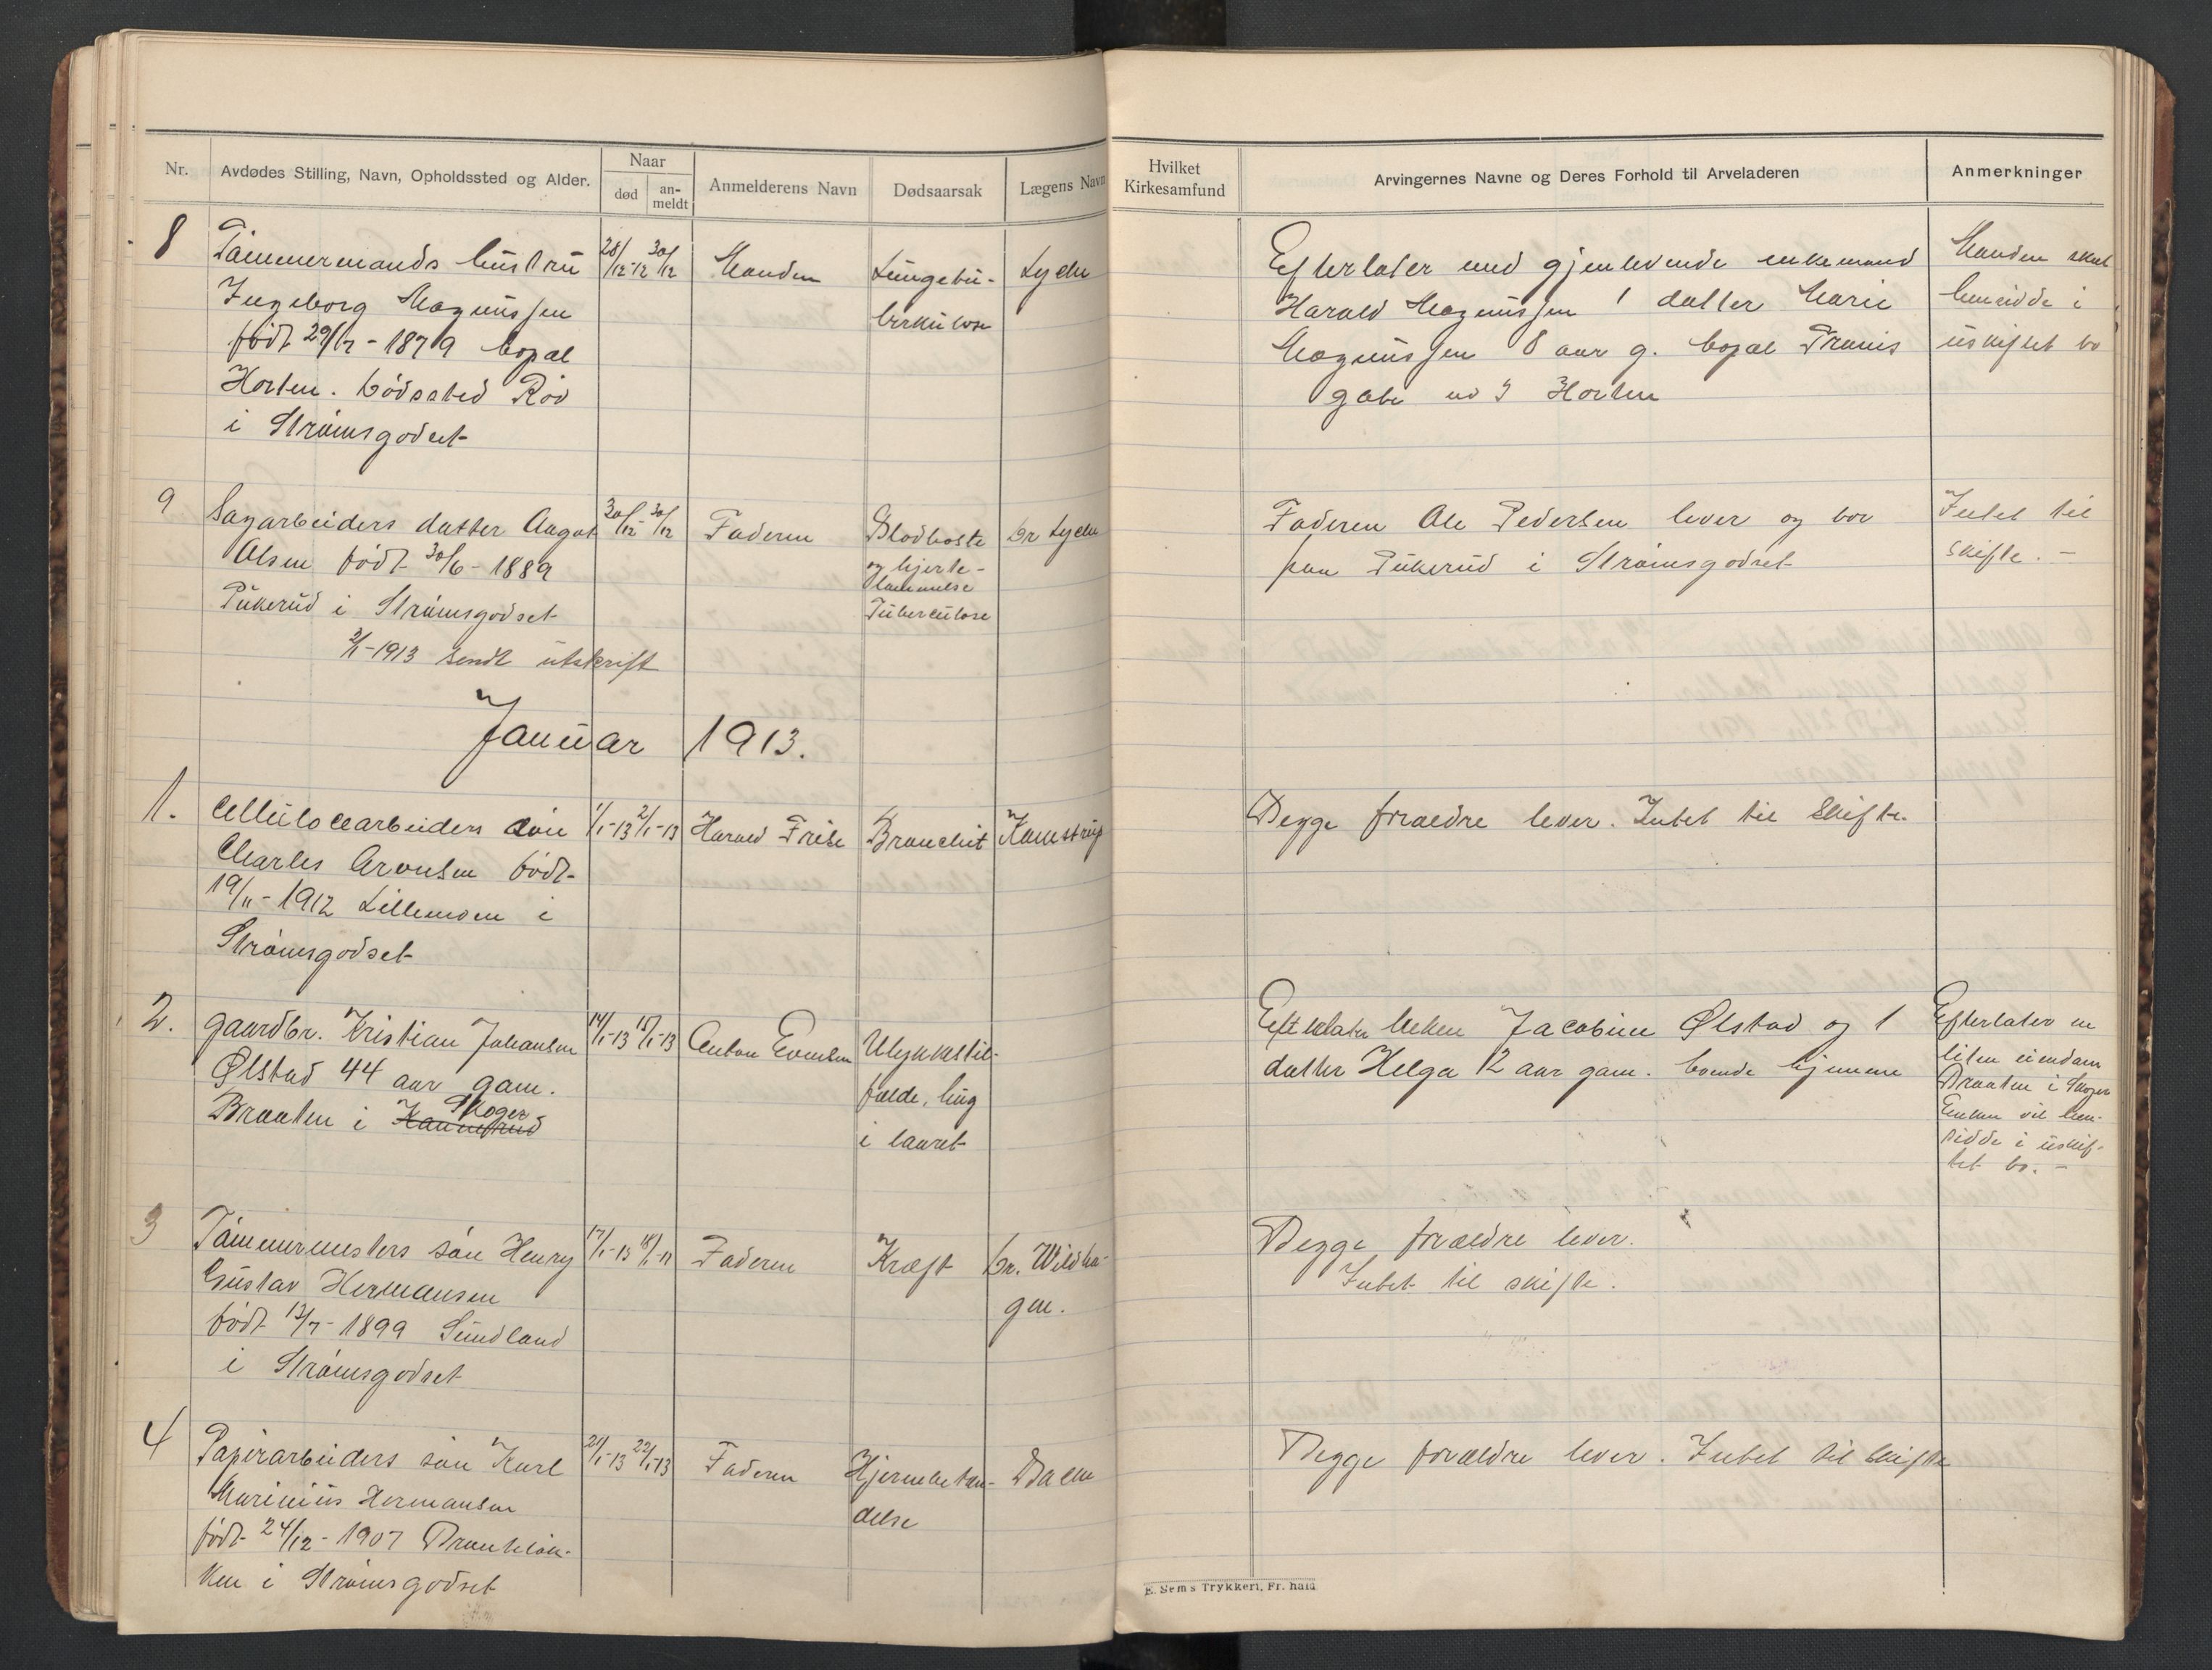 Nr.
Avdødes Stilling, Navn, Opholdssted og Alder.
Naar
død
an-
meldt
Anmelderens Navn
Dødsaarsak
Lægens Navn
Hvilket
Kirkesamfund
Arvingernes Navne og Deres Forhold til Arveladeren
Anmerkninger
8
Tømmermands hustru
Ingeborg Magnussen
født 29/12-1879 bopæl
Horten. Dødssted Rød
i Strømsgodset
28/12-12
30/12
Manden
Lungetu-
berkulose
Lyche
Efterlater med gjenlevende enkemand
Harald Magnussen 1 datter Marie
Magnussen 8 aar g. bopæl Travis
gate no 3 Horten
Manden skal
hensidde i
uskiftet bo
9
Sagarbeiders datter Aagot
Olsen født 30/6-1889
Pukerud i Strømsgodset
2/1-1913 sendt utskrift
30/12
30/12
Faderen
Blodhoste
og hjerte-
lammelse
Tuberculose
Dr Lyche
Faderen Ole Pedersen lever og bor
paa Pukerud i Strømsgodset
Intet til
skifte. -
Januar 1913.
1.
Cellulosearbeiders søn
Charles Aronsen født
19/11-1912 Lillemoen i
Strømsgodset
1/1-13
2/1-13
Harald Friis
Bronchit
Kamstrup
Begge forældre lever. Intet til Skifte.
2.
gaardbr. Kristian Johansen
Ølstad 44 aar gam.
Skoger
Braaten i
14/1-13
15/1-13
Anton Evensen
Ulykkestil-
fælde, hug
i laaret
Efterlater Enken Jacobine Ølstad og 1
datter Helga 12 aar gam. boende hjemme
Efterlater en
liten eiendom
Braaten i Skoger
Enken vil hen-
sidde i uskif-
tet bo. -
3
Tømmermesters søn Henry
Gustav Hermansen
født 13/7-1899 Sundland
i Strømsgodset
17/1-13
18/1-13
Faderen
Kræft
Dr. Wildha-
gen.
Begge forældre lever.
Intet til skifte.
4
Papirarbeiders søn Karl
Marinius Hermansen
født 24/12-1907 Branteløk-
ken i Strømsgodset
21/1-13
22/1-13
Faderen
Hjernebetæn-
delse
Dalen
Begge forældre lever. Intet til skifte
E. Sem's Trykkeri, Fr.hald